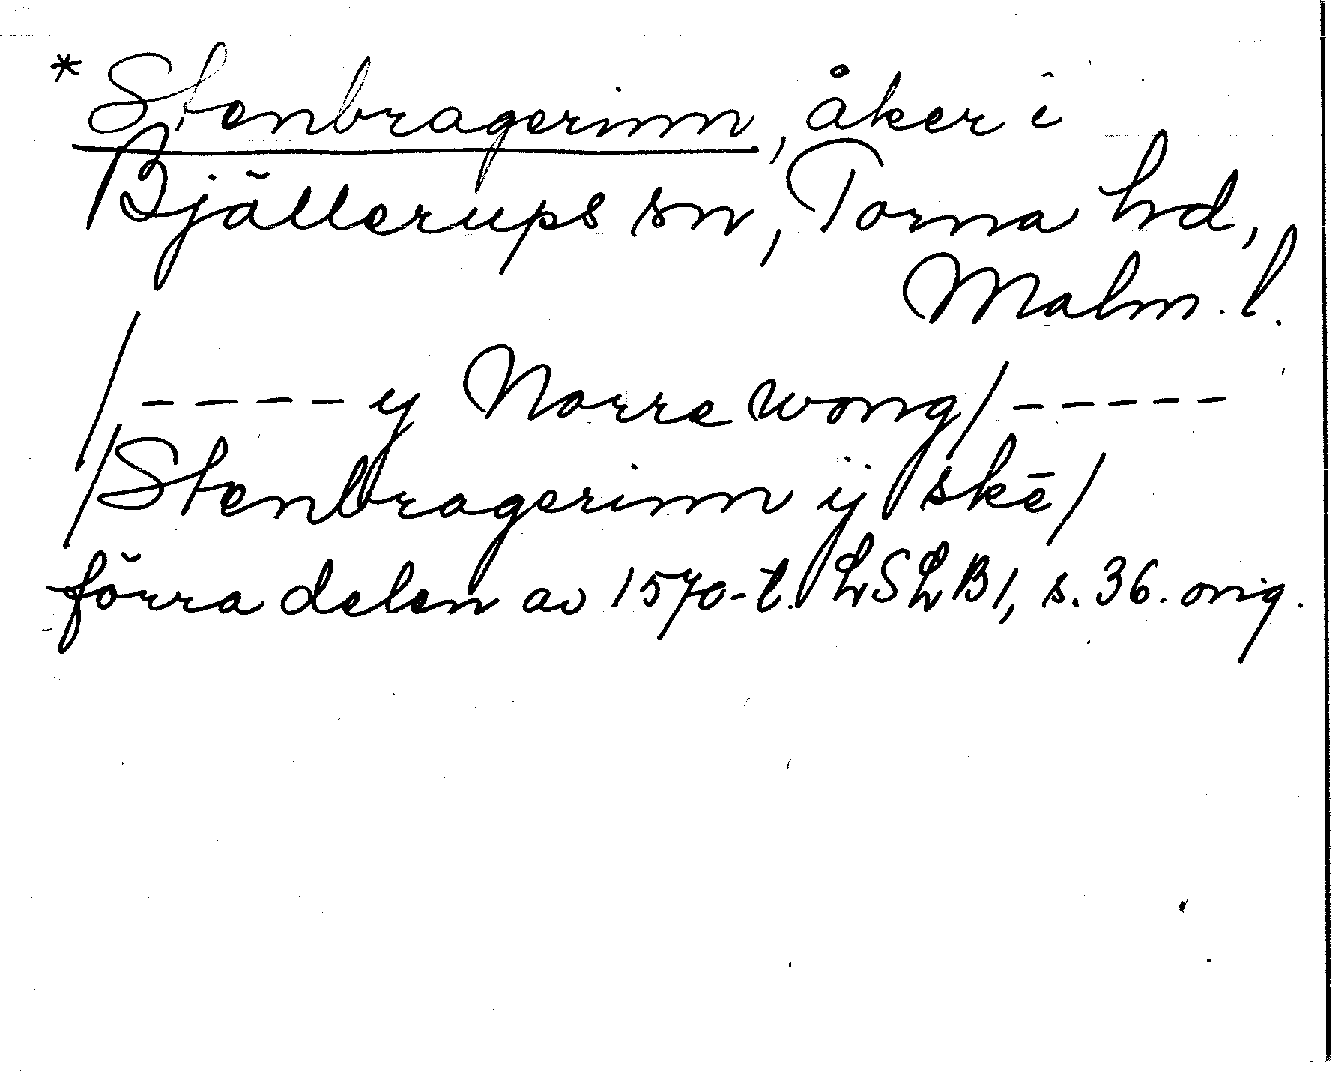 *Stenbragerinn, åker i
Bjällerups sn, Torna hd,
Malm. l.
/ - - - - y Norre wong / - - - - -
/ Stenbragerinn ij skē /
förra delen av 1570-t. LSLB1, s. 36. orig.